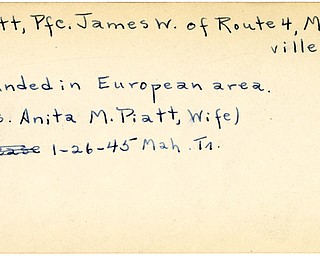 tt, Pfc. James W. of Route 4, M
ville
nded in European area.
s. Anita M. Piatt, Wife)
1-26-45 Mah. Tr.